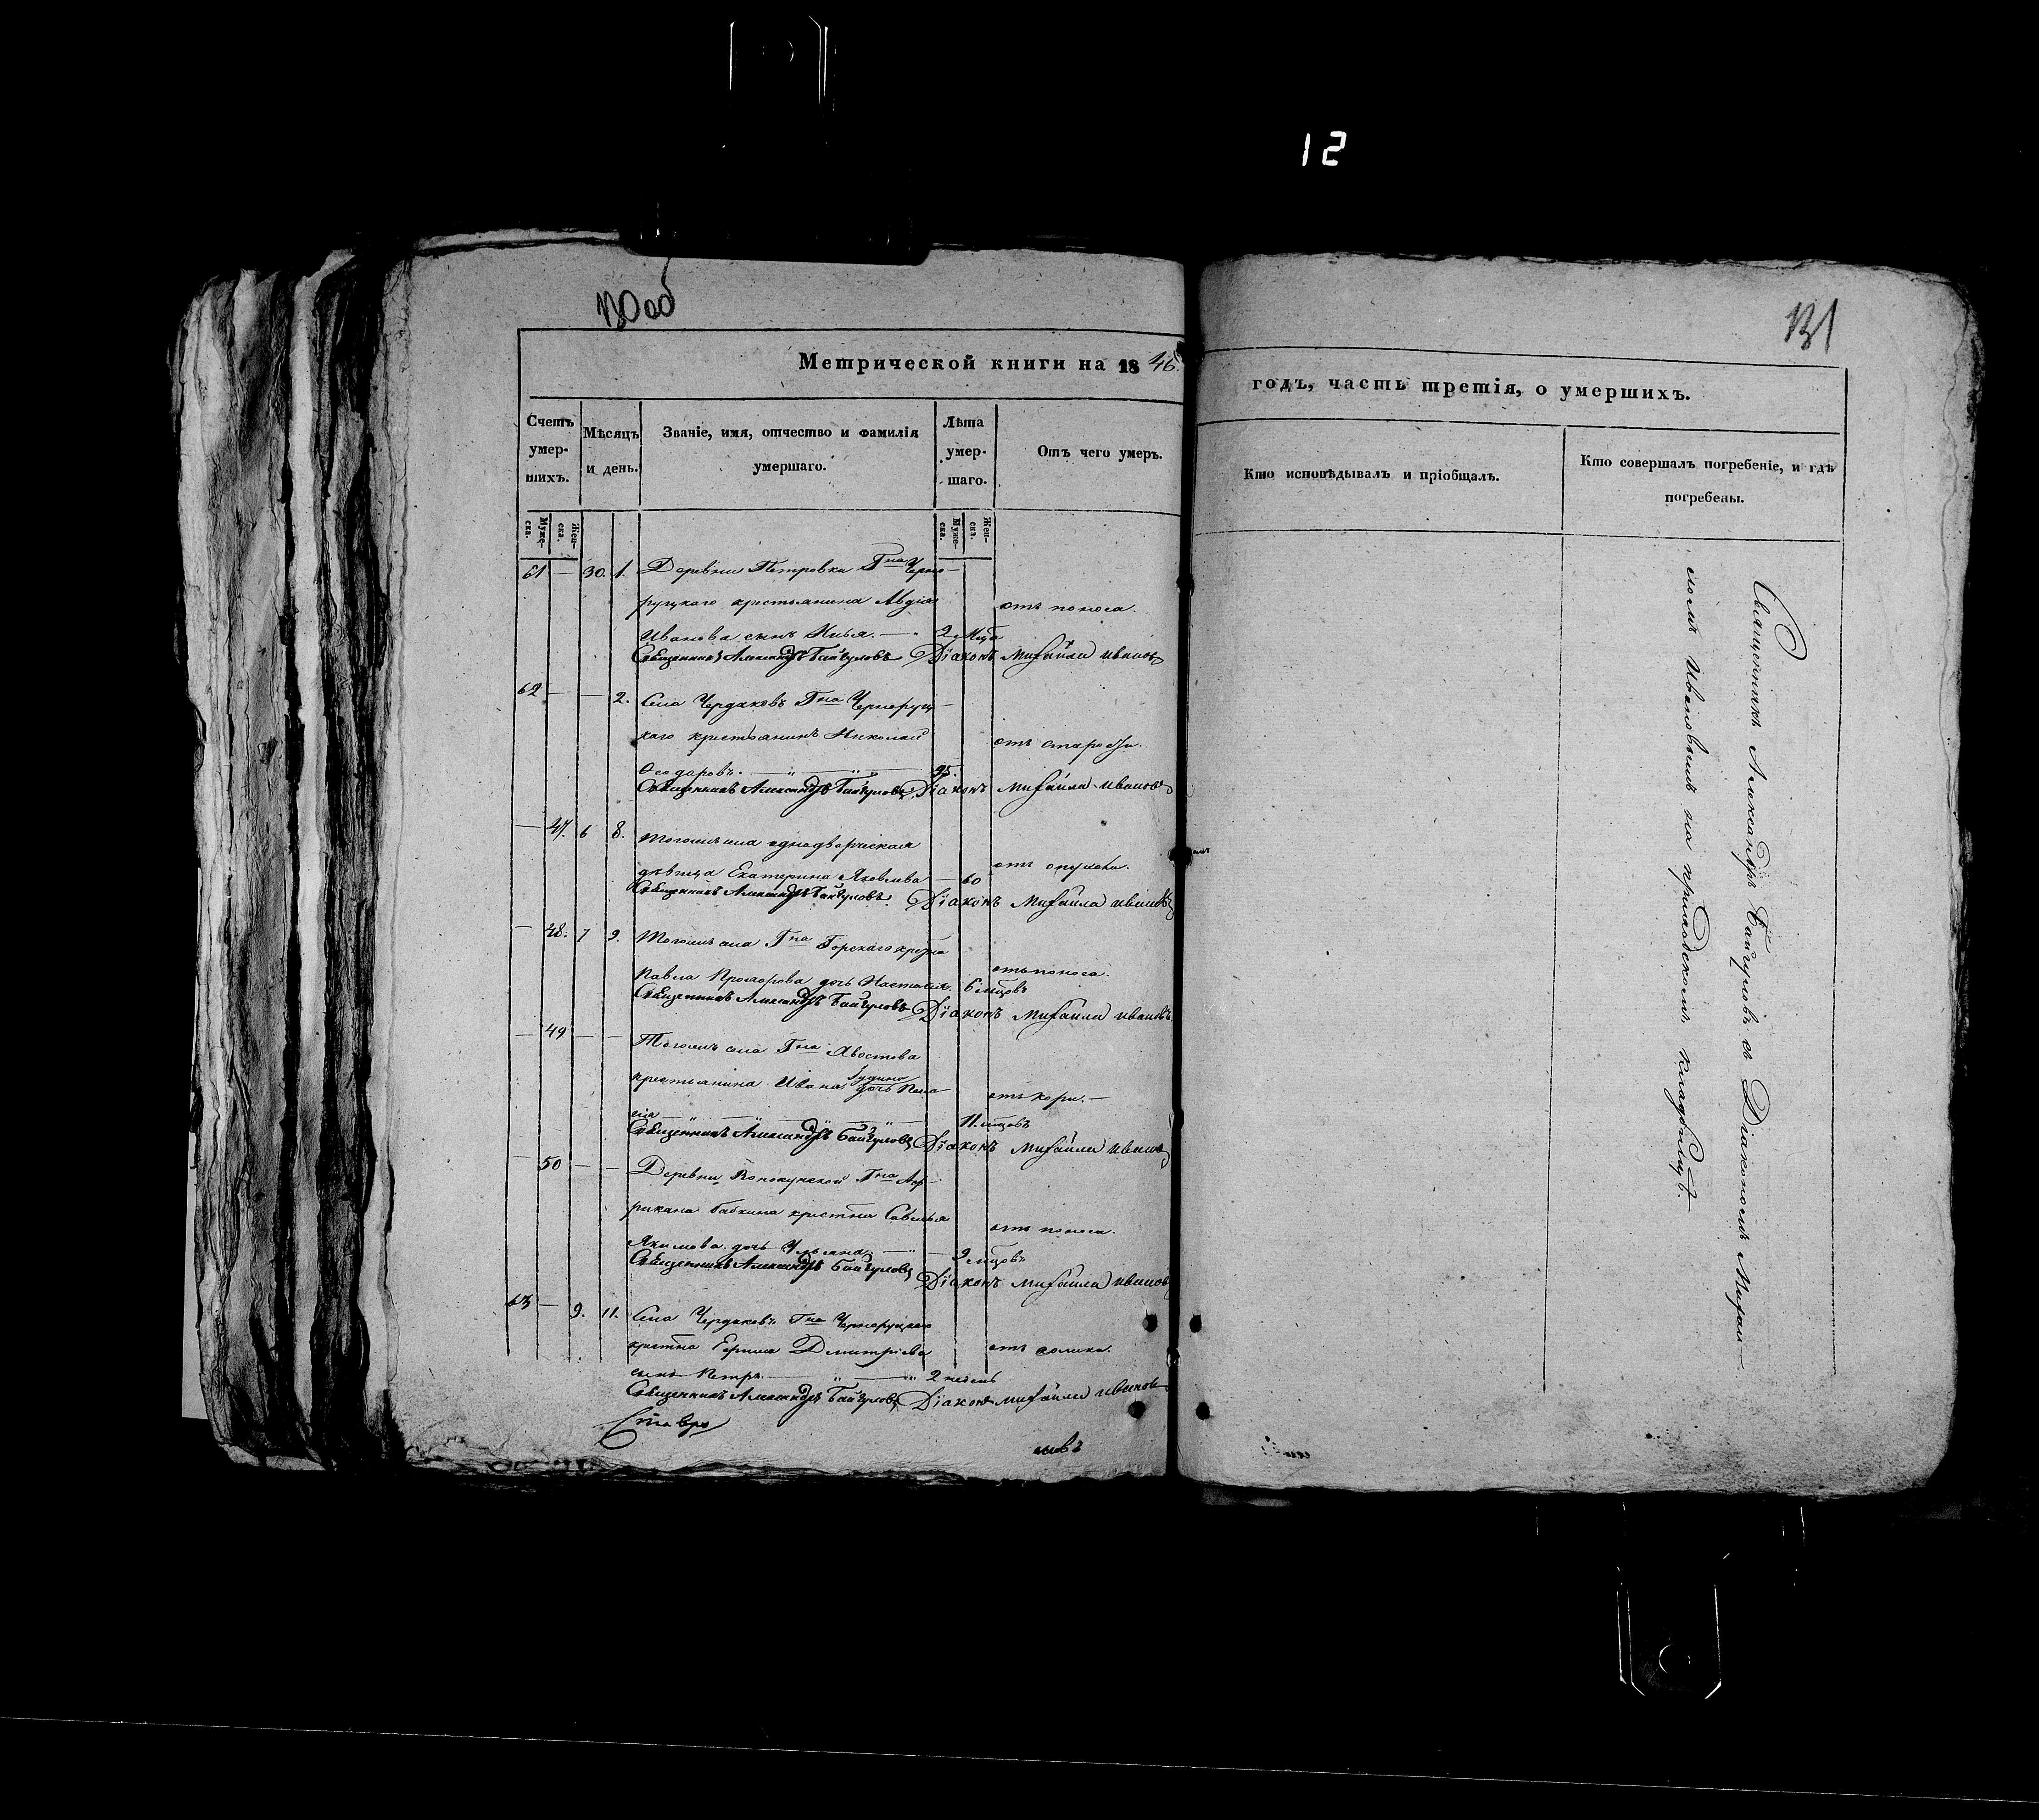 12
130 об
131
Метрической книги на 1846
годъ, часть третія, о умершихъ.
Счетъ умер-шихъ.
Мѣсяцъ и день.
Званіе, имя, отчество и фамилія умершаго.
Лѣта умер-шаго.
Отъ чего умеръ.
Кто исповѣдывалъ и пріобщалъ.
Кто совершалъ погребеніе, и гдѣ погребены.
Муже-ска.
Жен-ска.
Муже-ска.
Жен-ска.
61 — 30. 1. Деревни Петровки Гна Черно-
руцкаго крестьянина Авдѣя
отъ поноса.
Иванова сынъ Илья. — 2 мца
Священникъ Александръ Байгуловъ Діаконъ Михаила Ивановъ
62 — — 2. Села Чердаковъ Гна Черноруц-
каго крестьянинъ Николай
отъ старости.
Ѳеодоровъ. — 95.
Священникъ Александръ Байгуловъ Діаконъ Михаила Ивановъ
— 47. 6 8. Тогожъ села однодворческая
отъ опухоли.
дѣвица Екатерина Яковлева — 60
Священникъ Александръ Байгуловъ. Діаконъ Михаила Ивановъ
— 48. 7 9. Тогожъ села Гна Горскаго
отъ поноса.
Павла дочь 6 мцовъ
Священникъ Александръ Байгуловъ Діаконъ Михаила Ивановъ
— 49 — — Тогожъ села Гна Хвостова
крестьянина Ивана дочь Пела-
отъ кори. —
гія — 11. мцовъ
Священникъ Александръ Байгуловъ Діаконъ Михаила Ивановъ
— 50 — — Деревни Гна Аф-
рикана Бабкина Савелья
отъ поноса.
Якимова дочь Ульяна — 9 мцовъ
Священникъ Александръ Байгуловъ Діаконъ Михаила Ивановъ
63 — 9. 11. Села Чердаковъ Гна Черноруцкаго
Дмитріева
отъ
сынъ Петръ — 2 недель
Священникъ Александръ Байгуловъ Діаконъ Михаила Ивановъ
Священникъ Александръ Байгуловъ съ Діакономъ Михаи-
ломъ Ивановымъ на приходскомъ кладбищѣ.